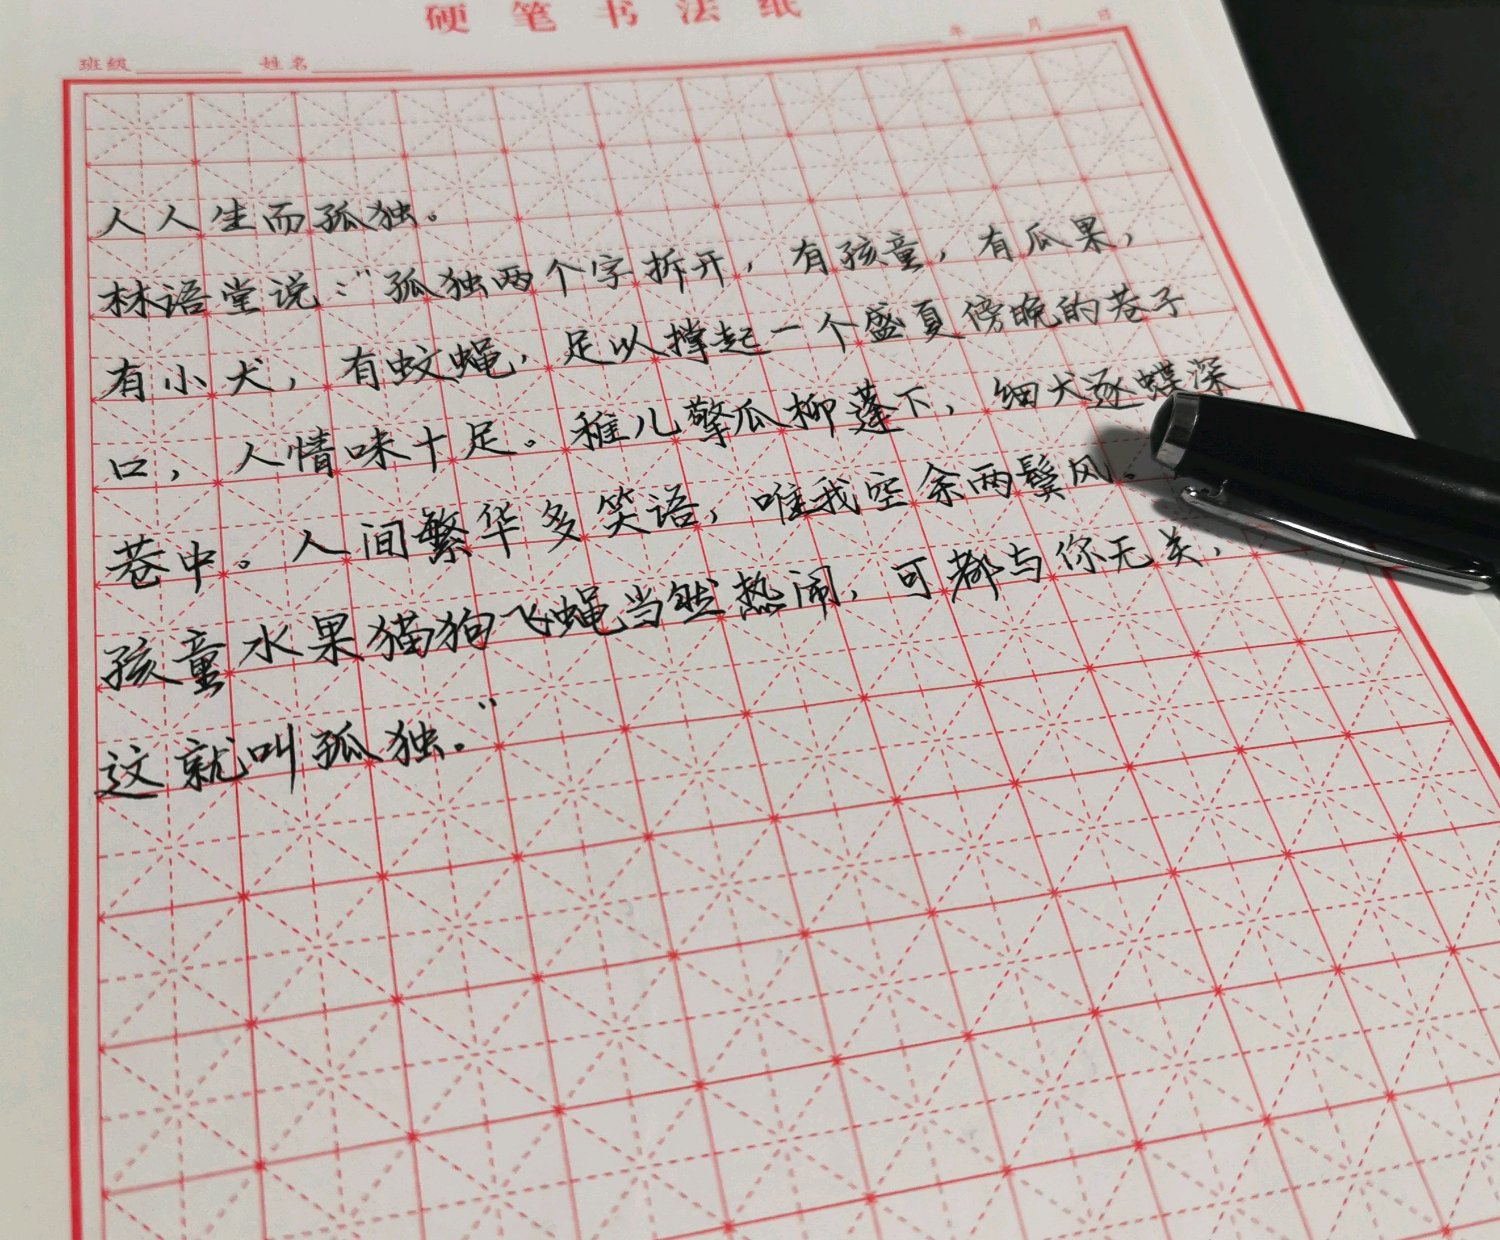 硬笔书法纸
班级 姓名 年 月 日
人人生而孤独。
林语堂说：“孤独两个字拆开，有孩童，有瓜果，
有小犬，有蚊蝇，足以撑起一个盛夏傍晚的巷子
口，人情味十足。稚儿擎瓜柳蓬下，细犬逐蝶深
巷中。人间繁华多笑语，唯我空余两鬓风。
孩童水果猫狗飞蝇当然热闹，可都与你无关，
这就叫孤独。”